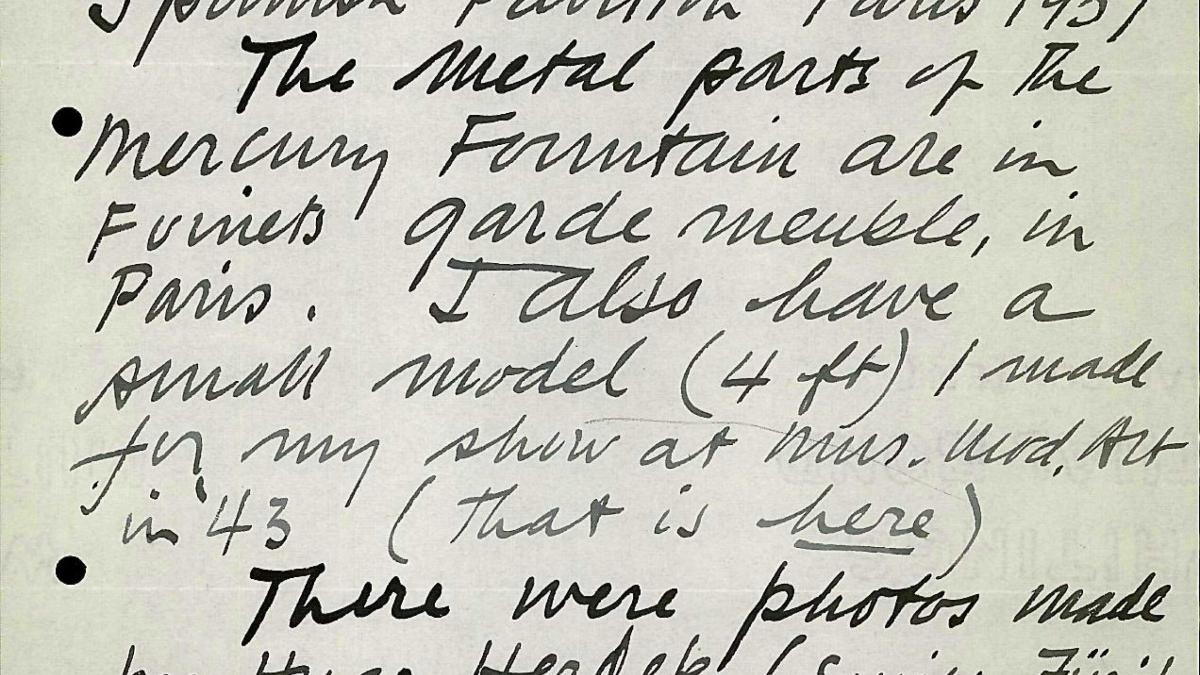 Spanish Pavilion Paris 1937
The metal parts of the
Mercury Fountain are in
garde meuble, in
Paris. I also have a
small model (4 ft) I made
for my show at Mus. Mod. Art
in '43 (that is here)
There were photos made
by Hugo Herdeg (Swiss